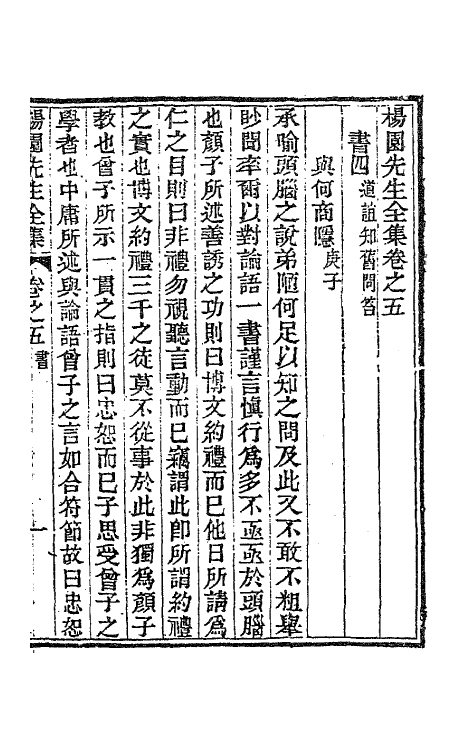 楊園先生全集卷之五
書四 道誼知舊問答
與何商隱 庚子
承喻頭腦之說弟陋何足以知之問及此又不敢不粗舉
所聞率爾以對論語一書謹言慎行為多不亟亟於頭腦
也顏子所述善誘之功則曰博文約禮而已他日所請為
仁之目則曰非禮勿視聽言動而已竊謂此卽所謂約禮
之實也博文約禮三千之徒莫不從事於此非獨為顏子
教也曾子所示一貫之指則曰忠恕而已子思受曾子之
學者也中庸所述與論語曾子之言如合符節故曰忠恕
楊園先生全集 卷之五 書 一